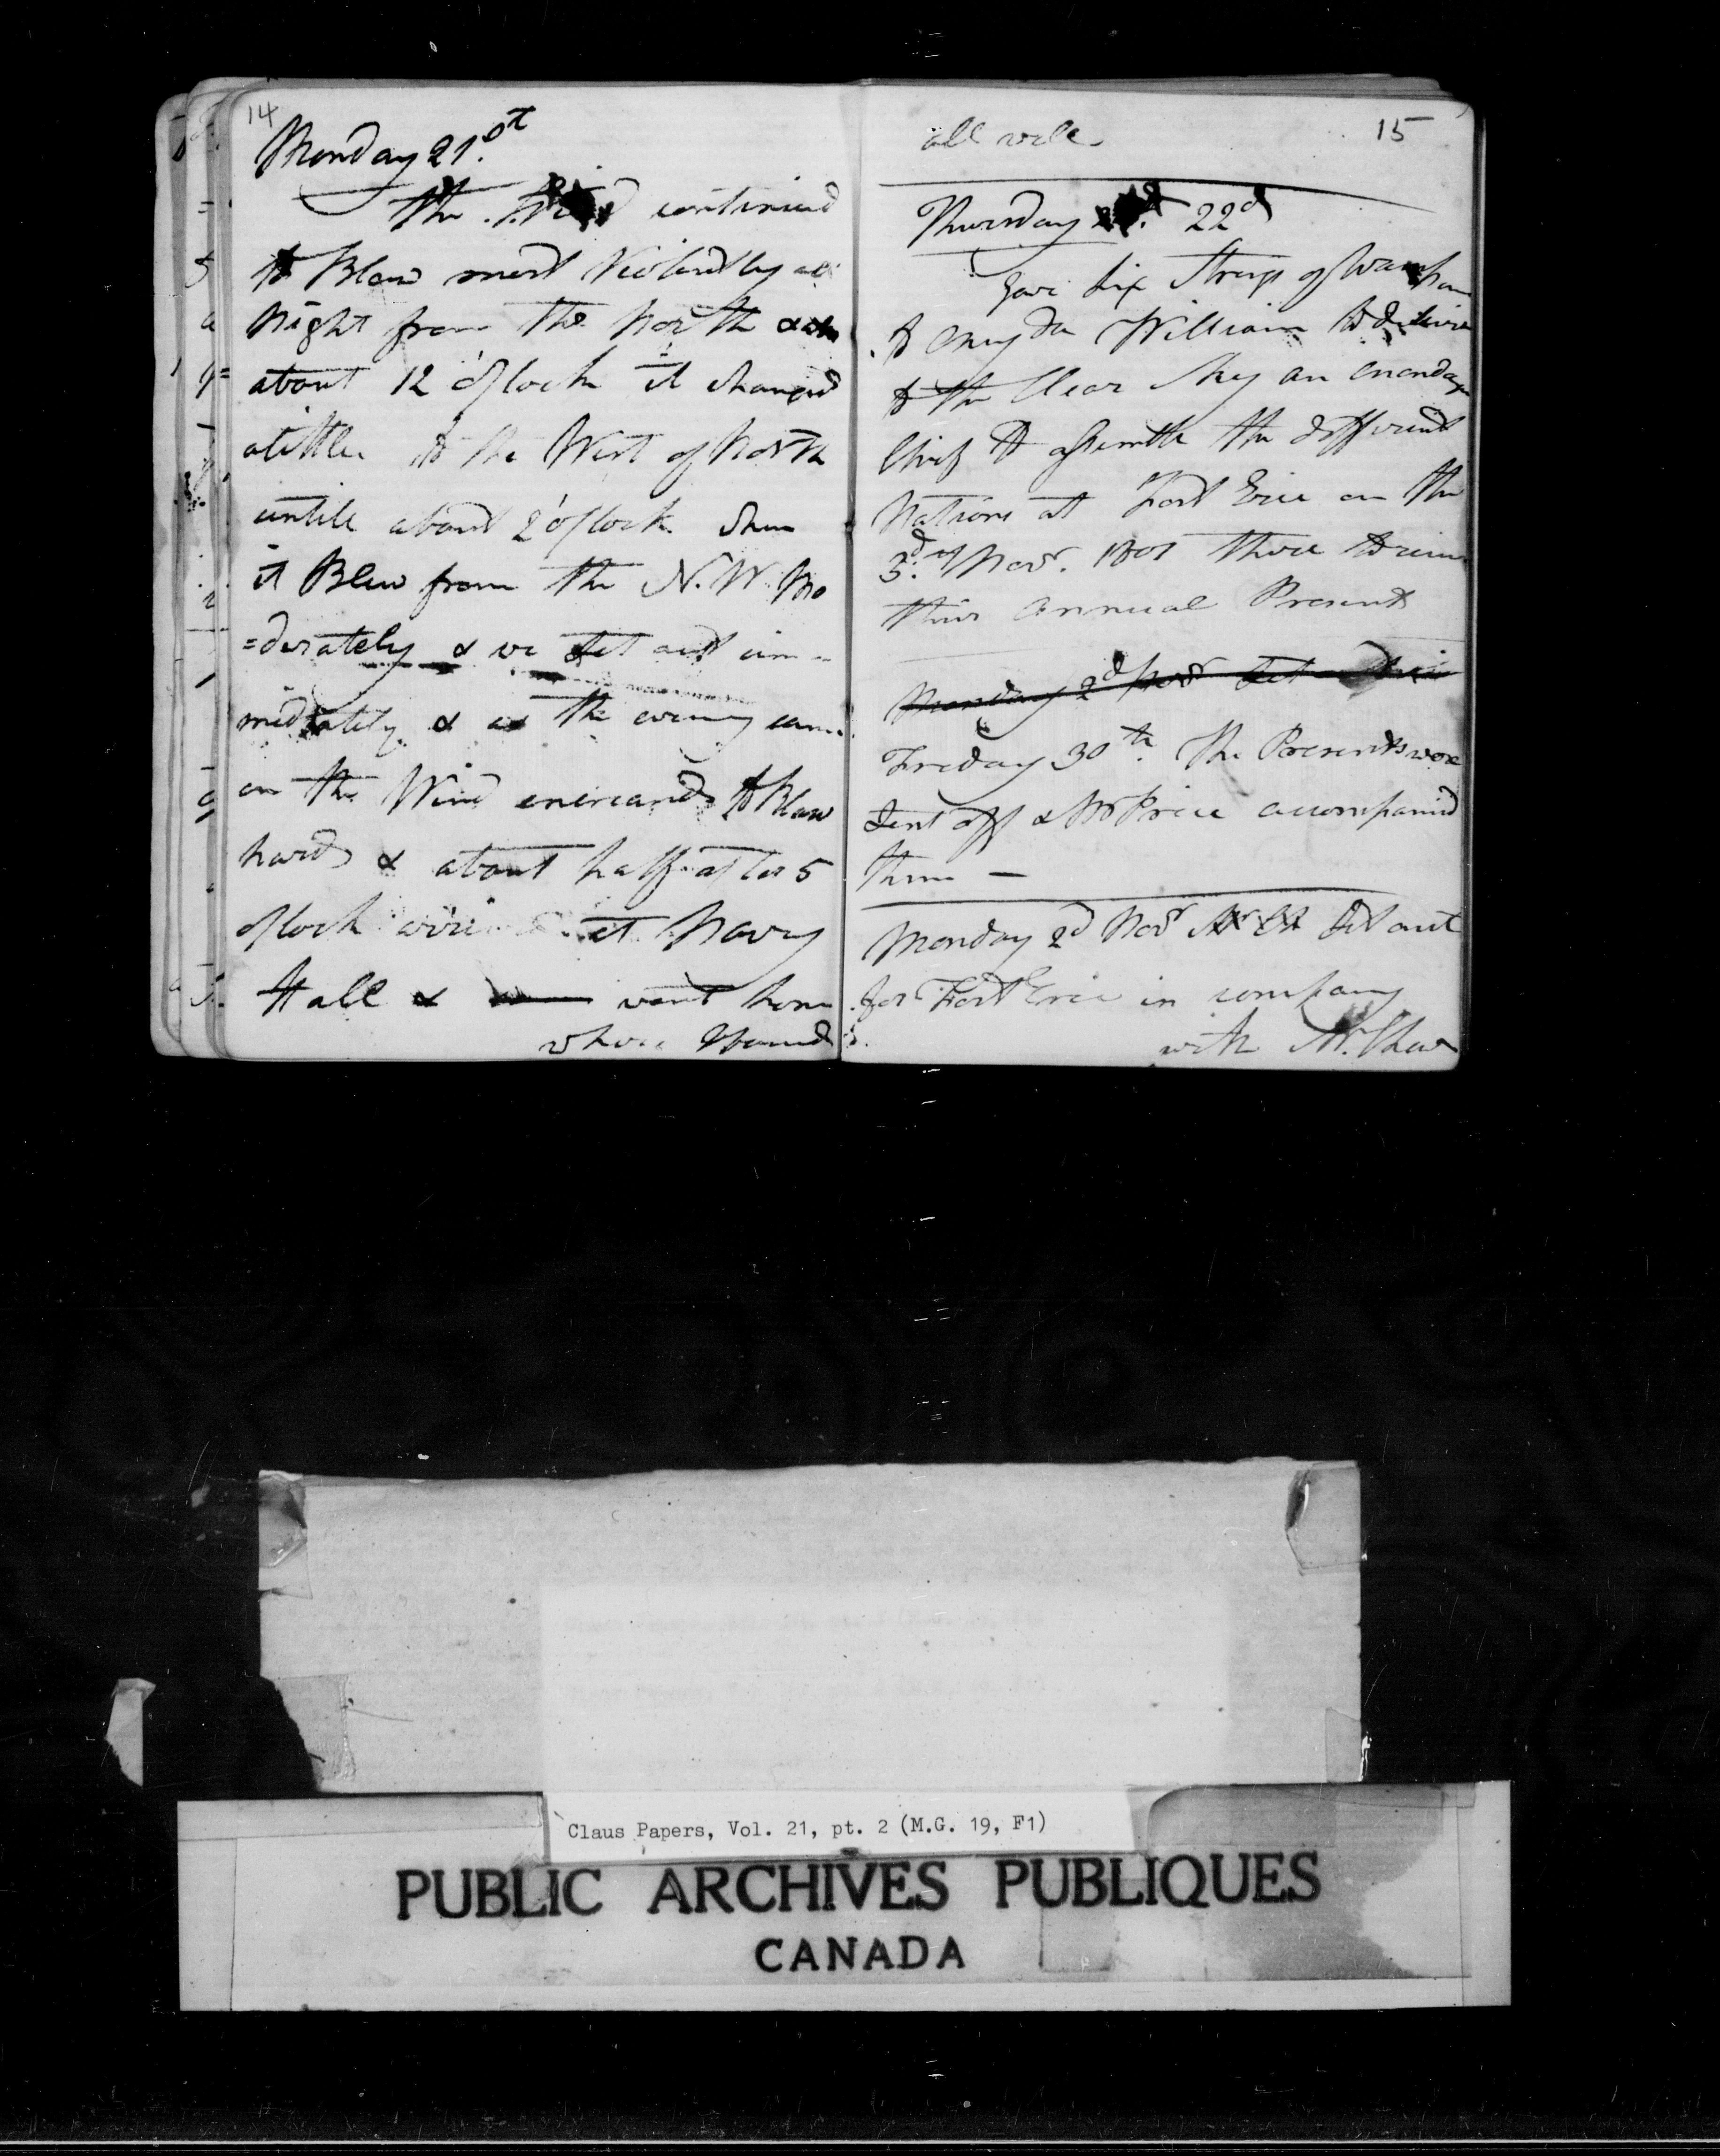 14
Monday 21.st
The Wind continued
to Blow most Violently all
night from the North &
about 12 o'Clock it changed
alittle to the West of North
untill about 2 o'Clock when
it Blew from the N.W. Mo
=derately & we set out im-
mediately & as the evening came
on the Wind encreased to Blow
hard & about half after 5
oClock arrived at Navy
Hall & went home
where I found
15
all well.
Thursday 22d
Gave six Strings of Wampum
to Oneyda William to deliver
to the Clear Sky an Onondaga
Chief to assemble the different
Nations at Fort Erie on the
3.d of Novr. 1801 there to receive
their Annual Present
Monday 2d Novr Set
Friday 30th. The Presents were
sent off & Mr Price accompanied
them —
Monday 2d Novr Set out
for Fort Erie in company
with Mr. Chew
Claus Papers, Vol. 21, pt. 2 (M.G. 19, F1)
PUBLIC ARCHIVES PUBLIQUES
CANADA